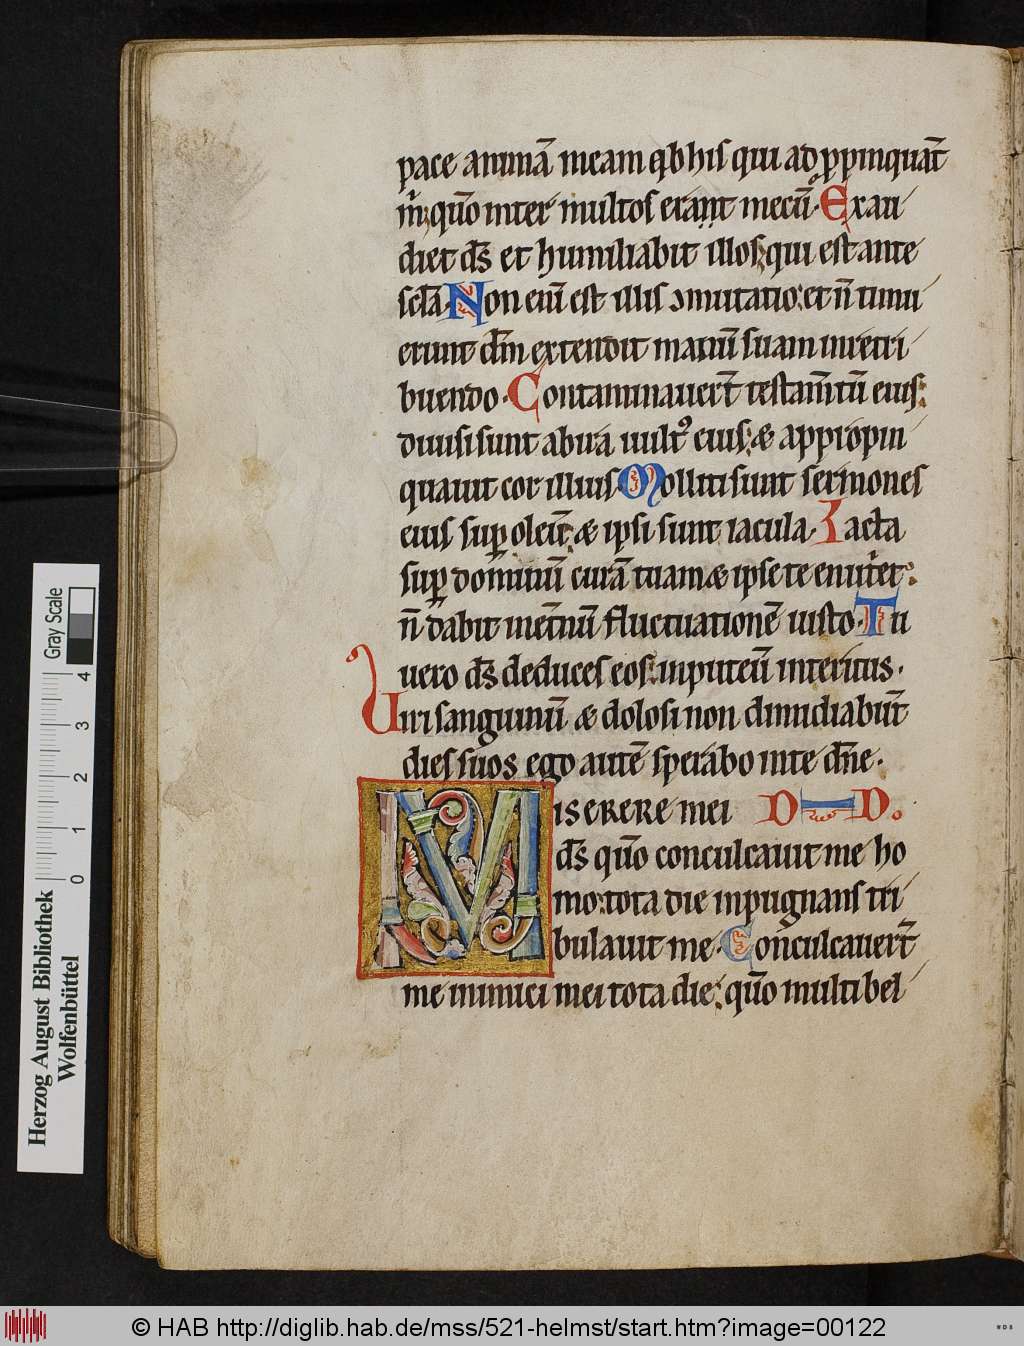 pace animā meam ab his qui ad ppinquāt
m̄: qm̄o inter multos erant mecū. Exau
diet ds̄ et humiliabit illos: qui est ante
scl̄a. Non eni est illis ɔmutatio: et n̄ timu
erunt dm̄ extendit manū suam in retri
buendo. Contaminaver̄t testam̄tū eius:
divisi sunt ab ira vult᾽ eius: & appropin
quavit cor illius. Molliti sunt sermones
eius sup oleū: & ipsi sunt iacula. Iacta
sup dominū curā tuam & ipse te enutriet:
n̄ dabit inet̄nū fluctuationē iusto. Tu
vero ds̄ deduces eos: in puteū interitus.
Viri sanguinū & dolosi non dimidiabūt
dies suos ego autē sperabo in te dn̄e.
Miserere mei D D.
ds̄ qm̄o conculcavit me ho
mo: tota die inpugnans tri
bulavit me. Conculcaver̄t
me inimici mei tota die: qm̄o multi bel
Herzog August Bibliothek
Wolfenbüttel
Gray Scale
0 1 2 3 4
© HAB http://diglib.hab.de/mss/521-helmst/start.htm?image=00122